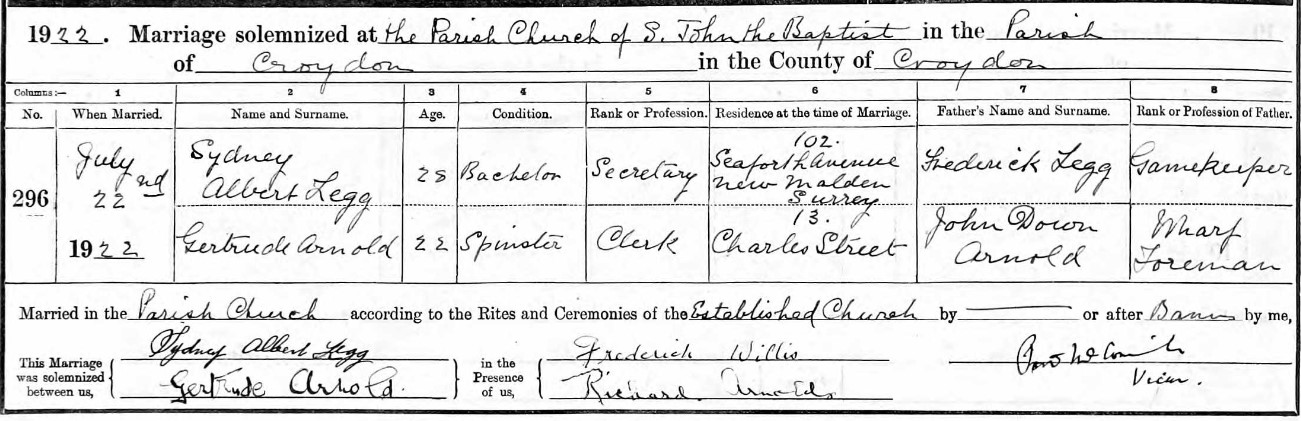 1922. Marriage solemnized at the Parish Church of S. John the Baptist in the Parish
of Croydon in the County of Croydon
Columns:— 1 2 3 4 5 6 7 8
No. When Married. Name and Surname. Age. Condition. Rank or Profession. Residence at the time of Marriage. Father's Name and Surname. Rank or Profession of Father.
296
July
22nd
1922
Sydney
Albert Legg
28
Bachelor
Secretary
102.
Seaforth Avenue
New Malden
Surrey
Frederick Legg
Gamekeeper
Gertrude Arnold
22
Spinster
Clerk
13.
Charles Street
John Down
Arnold
Wharf
Foreman
Married in the Parish Church according to the Rites and Ceremonies of the Established Church by — or after Banns by me,
This Marriage
was solemnized
between us,
Sydney Albert Legg
Gertrude Arnold.
in the
Presence
of us,
Frederick Willis
Richard Arnold
Vicar.